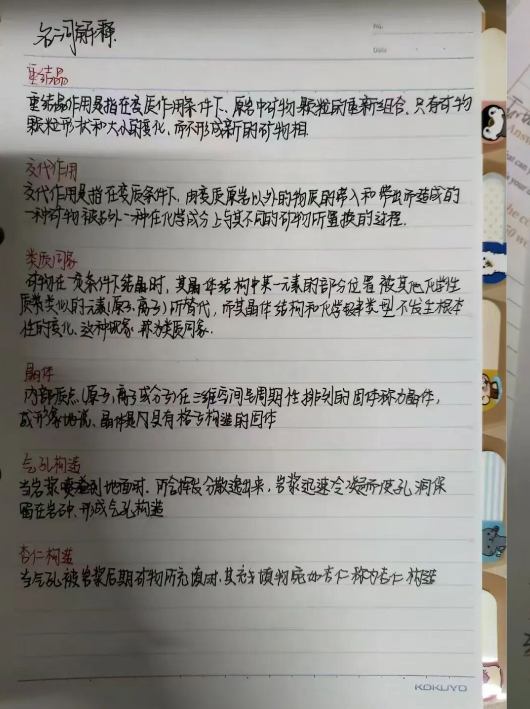 名词解释
No.
Date
重结晶
重结晶作用是指在变质作用条件下、原岩中矿物颗粒的重新组合,只有矿物
颗粒形状和大小的变化,而不形成新的矿物相.
交代作用
交代作用是指在变质条件下,由变质原岩以外的物质的带入和带出而造成的
一种矿物被另外一种在化学成分上与其不同的矿物所置换的过程.
类质同象
矿物在一定条件下结晶时,其晶体结构中某一元素的部分位置被其他化学性
质类似的元素(原子.离子)所替代,而其晶体结构和化学键类型不发生根本
性的变化,这种现象称为类质同象.
晶体
内部质点(原子,离子或分子)在三维空间呈周期性排列的固体称为晶体,
或形象地说、晶体是内具有格子构造的固体
气孔构造
当岩浆喷溢到地面时.所含挥发分散逸出来,岩浆迅速冷凝而使孔洞保
留在岩石中.形成气孔构造
杏仁构造
当气孔被岩浆后期矿物所充填时.其充填物宛如杏仁称为杏仁构造
KOKUYO